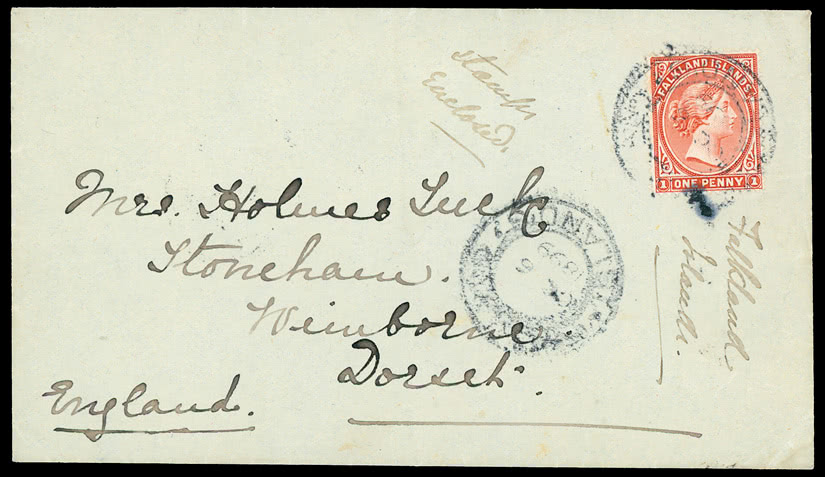 Stamps
Enclosed.
FALKLAND ISLANDS
1 ONE PENNY 1
Mrs. Holmes Tuck
Stoneham.
Wimborne.
Dorset.
England.
Falkland
Islands.